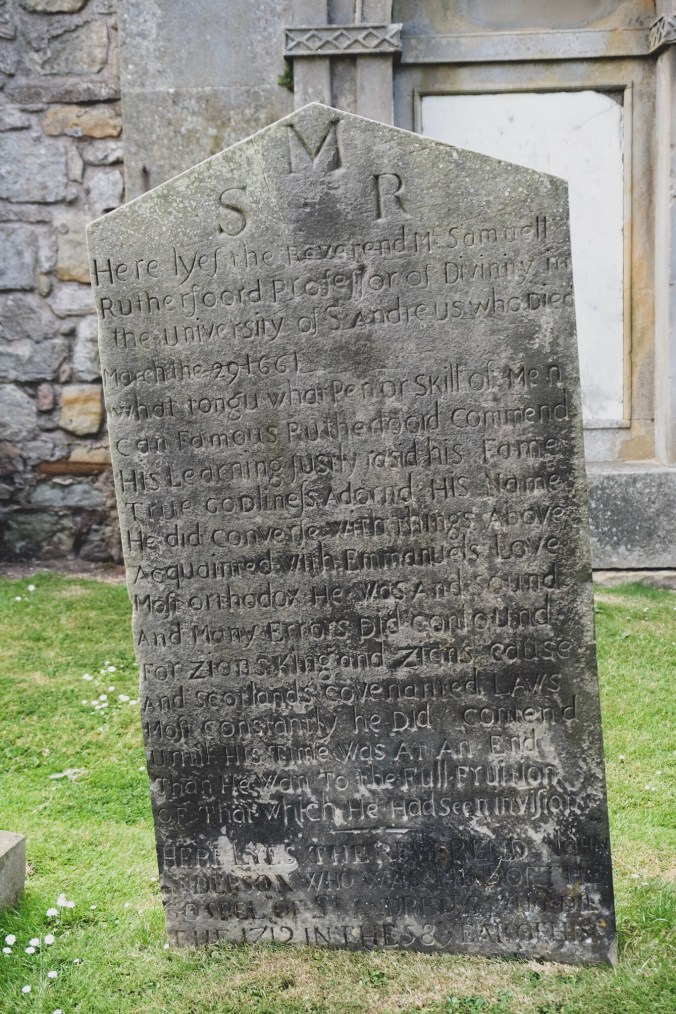 M
S R
Here lyeſ the Reverend Mr Samuell
Rutherfoord Profeſſor of Divinity in
the university of St Andreus who Died
March the 29 1661
what tongu what Pen or Skill of Men
can Famous Rutherfoord Commend
His Learning justly raisd his Fame
True GODlineſs Adornd HIS Name
He did converse with things Above
Acquainted with Emmanuels Love
Moſt orthodox He was And sound
And Many Errors Did confound
For Zions King and Zions cause
And scotlands covenanted LAWS
Moſt constantly he Did contend
Until His Time was At An End
Than He wan To the Full Fruition
OF That which He Had Seen in viſion
HERE LYES THE REVEREND
WHO WAS
GOSPEL OF
THE 1712 IN THE 58 YEAR OF HIS